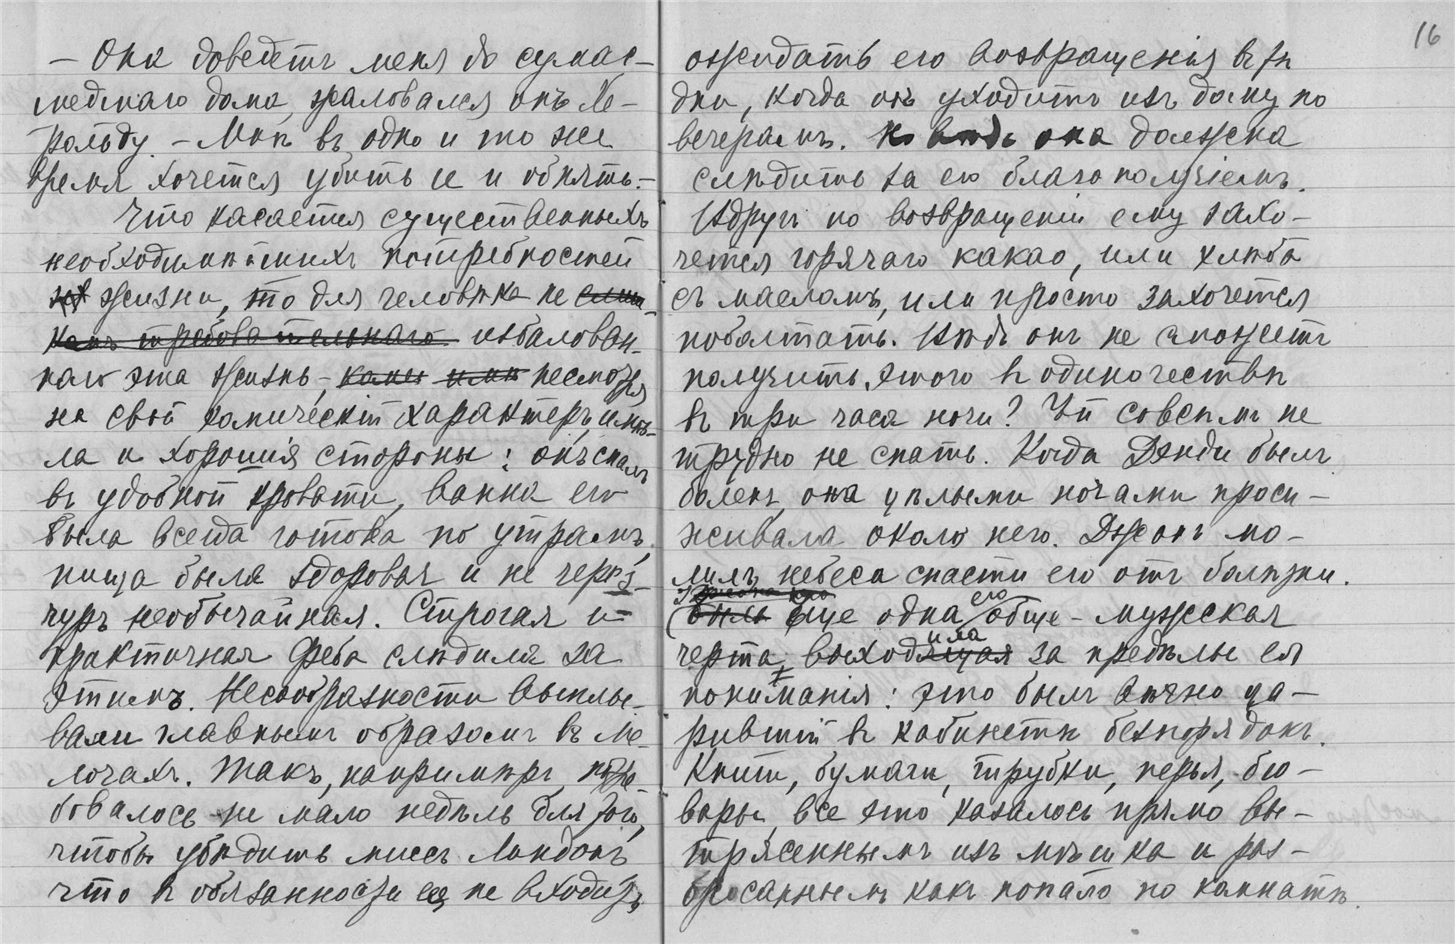 — Она доведетъ меня до сумас-
шедшаго дома, жаловался онъ Ха-
рольду. — Мнѣ въ одно и то же
время хочется убить ее и обнять. —
Что касается существенныхъ
необходимѣйшихъ потребностей
жизни, то для человѣка не слиш-
комъ требовательнаго избалован-
наго эта жизнь, — несмотря
на свой комическій характеръ, имѣ-
ла и хорошія стороны: онъ спалъ
въ удобной кровати, ванна его
была всегда готова по утрамъ,
пища была здоровая и не черезъ-
чуръ необычайная. Строгая и
практичная Феба слѣдила за
этимъ. Несообразности выплы-
вали главнымъ образомъ въ ме-
лочахъ. Такъ, напримѣръ, потре-
бовалось не мало недѣль для того,
чтобы убѣдить миссъ Лондонъ
что въ обязанности ея не входитъ
16
ожидать его возвращенія въ тѣ
дни, когда онъ уходитъ изъ дому по
вечерамъ. Но вѣдь она должна
слѣдить за его благополучіемъ.
Вдругъ по возвращеніи ему захо-
чется горячаго какао, или хлѣба
съ масломъ, или просто захочется
поболтать. Вѣдь онъ не сможетъ
получить этого въ одиночествѣ
въ три часа ночи? Ей совсѣмъ не
трудно не спать. Когда Дэнди былъ
боленъ, она цѣлыми ночами проси-
живала около него. Джонъ мо-
лилъ небеса спасти его отъ болѣзни.
Была еще одна его обще-мужская
черта, выходила за предѣлы ея
пониманія: это былъ вѣчно ца-
рившій въ кабинетѣ безпорядокъ.
Книги, бумаги, трубки, перья, бю-
вары, все это казалось прямо вы-
трясеннымъ изъ мѣшка и раз-
бросаннымъ какъ попало по комнатѣ.